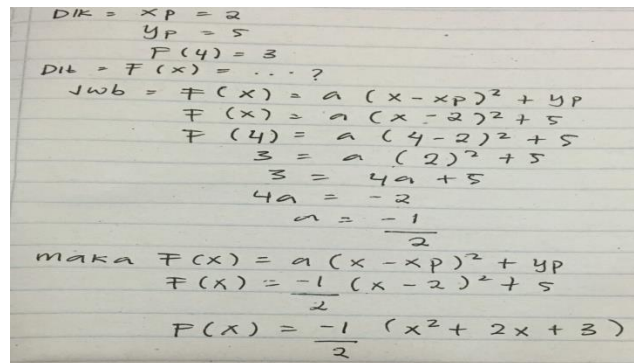 DIK = xp = 2
yp = 5
F(4) = 3
Dit = F(x) = .... ?
Jwb = F(x) = a (x - xp)² + yp
F(x) = a (x - 2)² + 5
F(4) = a (4 - 2)² + 5
3 = a (2)² + 5
3 = 4a + 5
4a = -2
a = -1/2
maka F(x) = a (x - xp)² + yp
F(x) = -1/2 (x - 2)² + 5
F(x) = -1/2 (x² + 2x + 3)